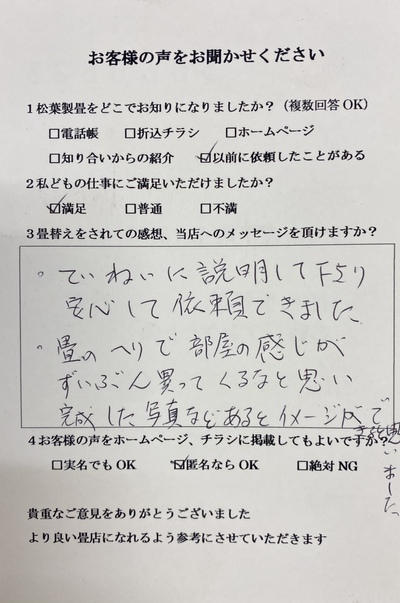 お客様の声をお聞かせください
1松葉製畳をどこでお知りになりましたか？（複数回答OK）
☐電話帳 ☐折込チラシ ☐ホームページ
☐知り合いからの紹介 ☑以前に依頼したことがある
2私どもの仕事にご満足いただけましたか？
☑満足 ☐普通 ☐不満
3畳替えをされての感想、当店へのメッセージを頂けますか？
。ていねいに説明して下さり
安心して依頼できました。
。畳のへりで部屋の感じが
ずいぶん異ってくるなと思い
完成した写真などあるとイメージができると思いました。
4お客様の声をホームページ、チラシに掲載してもよいですか？
☐実名でもOK ☑匿名ならOK ☐絶対NG
貴重なご意見をありがとうございました
より良い畳店になれるよう参考にさせていただきます